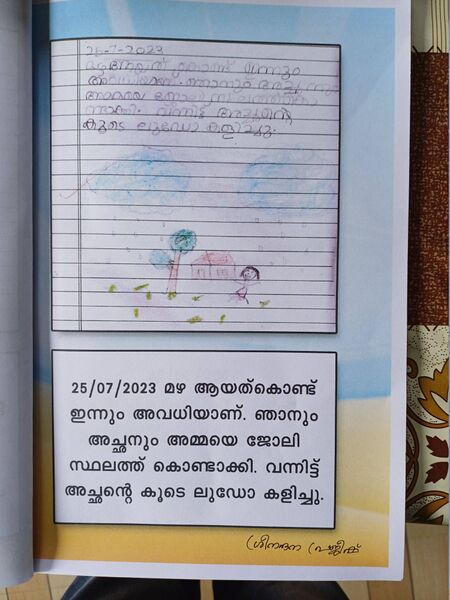 25-7-2023
മഴ ആയത് കൊണ്ട് ഇന്നും
അവധിയാണ്. ഞാനും അച്ഛനും
അമ്മയെ ജോലി സ്ഥലത്ത് കൊ
ണ്ടാക്കി. വന്നിട്ട് അച്ഛന്റെ
കൂടെ ലുഡോ കളിച്ചു.
25/07/2023 മഴ ആയത്കൊണ്ട്
ഇന്നും അവധിയാണ്. ഞാനും
അച്ഛനും അമ്മയെ ജോലി
സ്ഥലത്ത് കൊണ്ടാക്കി. വന്നിട്ട്
അച്ഛന്റെ കൂടെ ലുഡോ കളിച്ചു.
ശ്രീനന്ദന